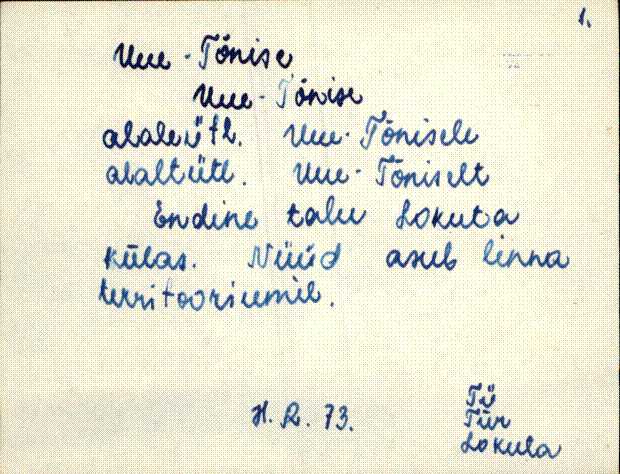 1.
Uue-Tõnise
Uue-Tõnise
alaleütl. Uue-Tõnisele
alaltütl. Uue-Tõniselt
Endine talu Lokuta
külas. Nüüd asub linna
territooriumil.
H. R. 73.
Tü
Tür
Lokuta